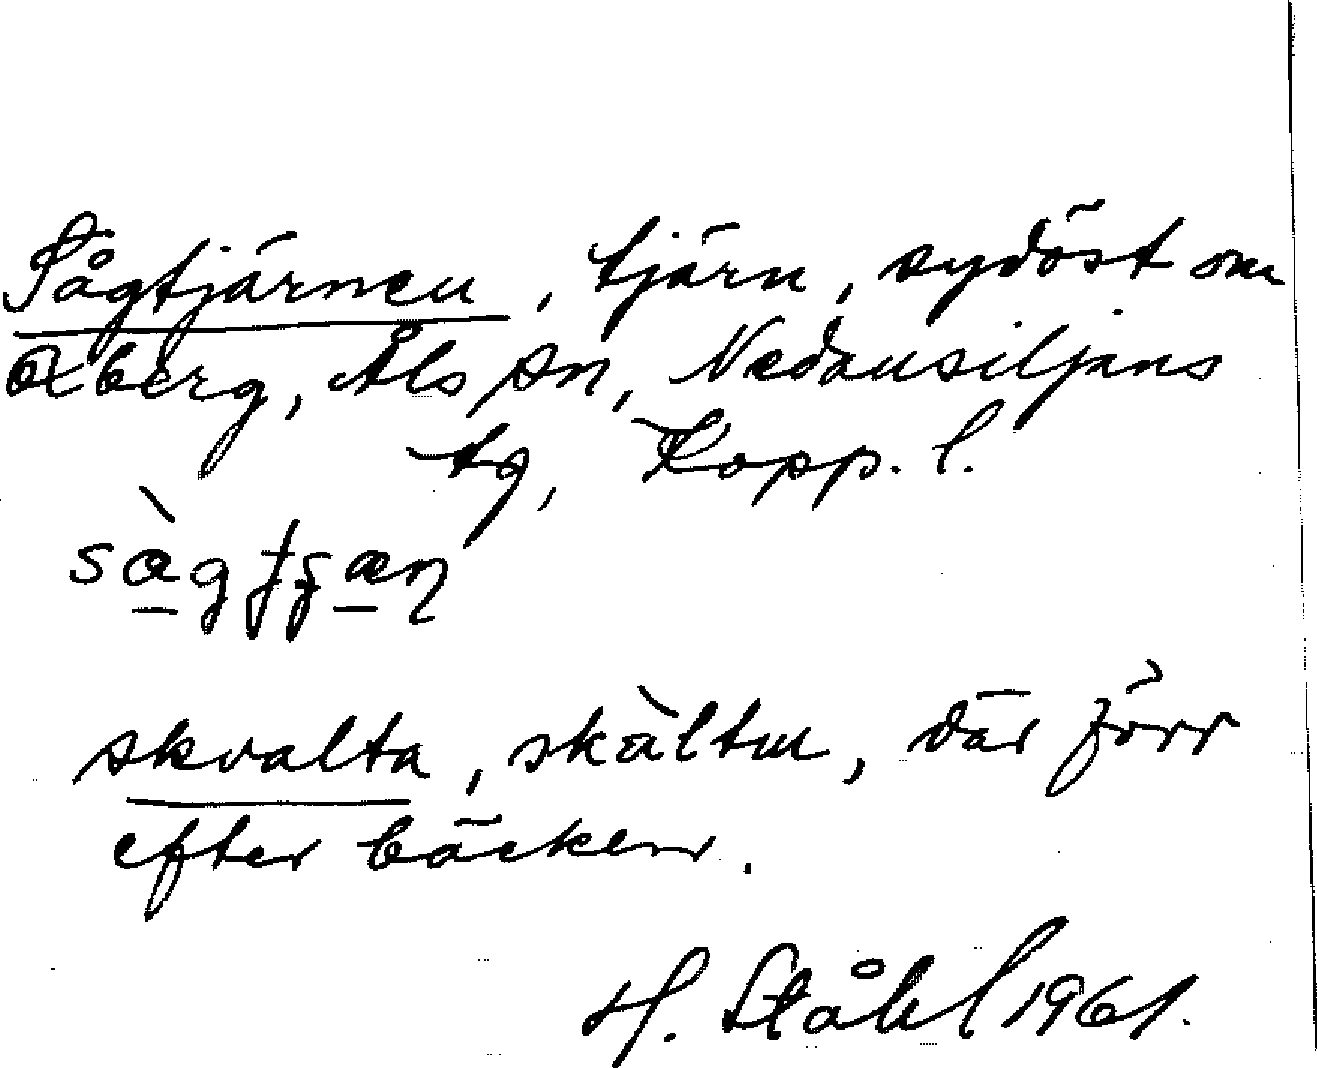 Sågtjärnen, tjärn, sydöst om
Oxberg, Åls sn, Nedansiljans
tg, Kopp. l.
skvalta, skàltɯ, där förr
efter bäcken.
H. Ståhl 1961.